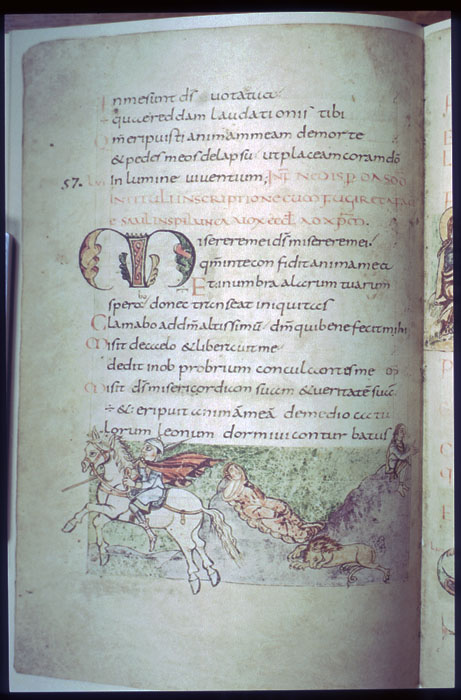 In me sunt dš uota tua
÷ quae reddam laudationis tibi
Qm̄ eripuisti animam meam de morte
& pedes meos de lapsu ut placeam coram dō
57.
In lumine uiuentium; IN
TITULI INSCRIPTIONE CUM FUGIRET A FACIE
SAUL IN SPELUNCA
Miserere mei dš miserere mei
qm̄ in te confidit anima mea
Et in umbra alarum tuarum
sperabo donec transeat iniquitas
Clamabo ad dm̄ altissimū dm̄ qui benefecit mihi
Misit de caelo & liberauit me
dedit in obprobrium conculcantes me
Misit dš misericordiam suam & ueritatē suā
÷ & eripuit animā meā de medio catu
lorum leonum dormiui conturbatus